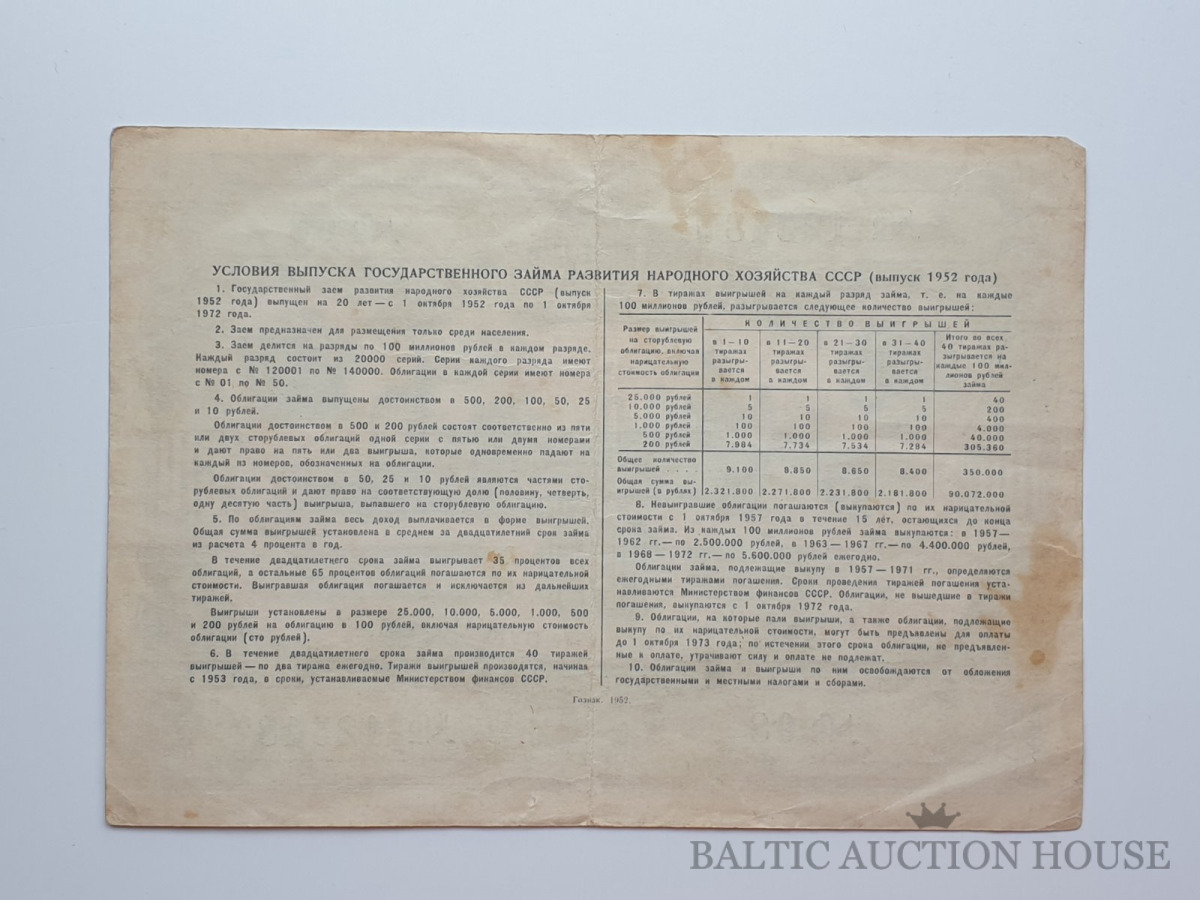 УСЛОВИЯ ВЫПУСКА ГОСУДАРСТВЕННОГО ЗАЙМА РАЗВИТИЯ НАРОДНОГО ХОЗЯЙСТВА СССР (выпуск 1952 года)
1. Государственный заем развития народного хозяйства СССР (выпуск
1952 года) выпущен на 20 лет — с 1 октября 1952 года по 1 октября
1972 года.
2. Заем предназначен для размещения только среди населения.
3. Заем делится на разряды по 100 миллионов рублей в каждом разряде.
Каждый разряд состоит из 20000 серий. Серии каждого разряда имеют
номера с № 120001 по № 140000. Облигации в каждой серии имеют номера
с № 01 по № 50.
4. Облигации займа выпущены достоинством в 500, 200, 100, 50, 25
и 10 рублей.
Облигации достоинством в 500 и 200 рублей состоят соответственно из пяти
или двух сторублевых облигаций одной серии с пятью или двумя номерами
и дают право на пять или два выигрыша, которые одновременно падают на
каждый из номеров, обозначенных на облигации.
Облигации достоинством в 50, 25 и 10 рублей являются частями сто-
рублевых облигаций и дают право на соответствующую долю (половину, четверть,
одну десятую часть) выигрыша, выпавшего на сторублевую облигацию.
5. По облигациям займа весь доход выплачивается в форме выигрышей.
Общая сумма выигрышей установлена в среднем за двадцатилетний срок займа
из расчета 4 процента в год.
В течение двадцатилетнего срока займа выигрывает 35 процентов всех
облигаций, а остальные 65 процентов облигаций погашаются по их нарицательной
стоимости. Выигравшая облигация погашается и исключается из дальнейших
тиражей.
Выигрыши установлены в размере 25.000, 10.000, 5.000, 1.000, 500
и 200 рублей на облигацию в 100 рублей, включая нарицательную стоимость
облигации (сто рублей).
6. В течение двадцатилетнего срока займа производится 40 тиражей
выигрышей — по два тиража ежегодно. Тиражи выигрышей производятся, начиная
с 1953 года, в сроки, устанавливаемые Министерством финансов СССР.
7. В тиражах выигрышей на каждый разряд займа, т. е. на каждые
100 миллионов рублей, разыгрывается следующее количество выигрышей:
Размер выигрышей на сторублевую облигацию, включая нарицательную стоимость облигации
КОЛИЧЕСТВО ВЫИГРЫШЕЙ
в 1—10 тиражах разыгры- вается в каждом
в 11—20 тиражах разыгры- вается в каждом
в 21—30 тиражах разыгры- вается в каждом
в 31—40 тиражах разыгры- вается в каждом
Итого во всех 40 тиражах ра- зыгрывается на каждые 100 мил- лионов рублей займа
25.000 рублей 1 1 1 1 40
10.000 рублей 5 5 5 5 200
5.000 рублей 10 10 10 10 400
1.000 рублей 100 100 100 100 4.000
500 рублей 1.000 1.000 1.000 1.000 40.000
200 рублей 7.984 7.734 7.534 7.284 305.360
Общее количество
выигрышей . . . . 9.100 8.850 8.650 8.400 350.000
Общая сумма вы-
игрышей (в рублях) 2.321.800 2.271.800 2.231.800 2.181.800 90.072.000
8. Невыигравшие облигации погашаются (выкупаются) по их нарицательной
стоимости с 1 октября 1957 года в течение 15 лет, остающихся до конца
срока займа. Из каждых 100 миллионов рублей займа выкупаются: в 1957—
1962 гг.— по 2.500.000 рублей, в 1963 — 1967 гг.— по 4.400.000 рублей,
в 1968 — 1972 гг.— по 5.600.000 рублей ежегодно.
Облигации займа, подлежащие выкупу в 1957 — 1971 гг., определяются
ежегодными тиражами погашения. Сроки проведения тиражей погашения уста-
навливаются Министерством финансов СССР. Облигации, не вышедшие в тиражи
погашения, выкупаются с 1 октября 1972 года.
9. Облигации, на которые пали выигрыши, а также облигации, подлежащие
выкупу по их нарицательной стоимости, могут быть предъявлены для оплаты
до 1 октября 1973 года; по истечении этого срока облигации, не предъявлен-
ные к оплате, утрачивают силу и оплате не подлежат.
10. Облигации займа и выигрыши по ним освобождаются от обложения
государственными и местными налогами и сборами.
Гознак. 1952.
BALTIC AUCTION HOUSE